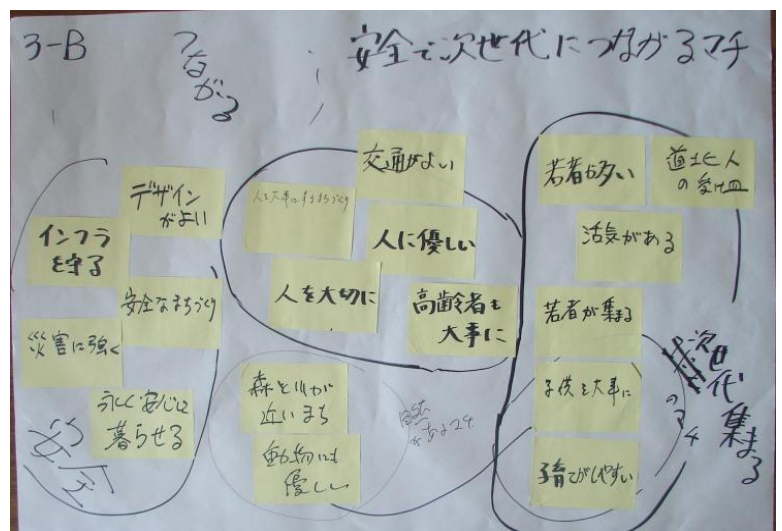 3-B
つながる
安全で次世代につながるマチ
デザイン
がよい
インフラ
を守る
安全なまちづくり
災害に強く
安心に
暮らせる
安全
交通がよい
人を大事にするまちづくり
人に優しい
人を大切に
高齢者も
大事に
森と川が
近いまち
動物にも
優しい
自然
があるマチ
若者が多い
道北人
の受け皿
活気がある
若者が集まる
子供を大事に
子育てがしやすい
次世代
集まる
のマチ